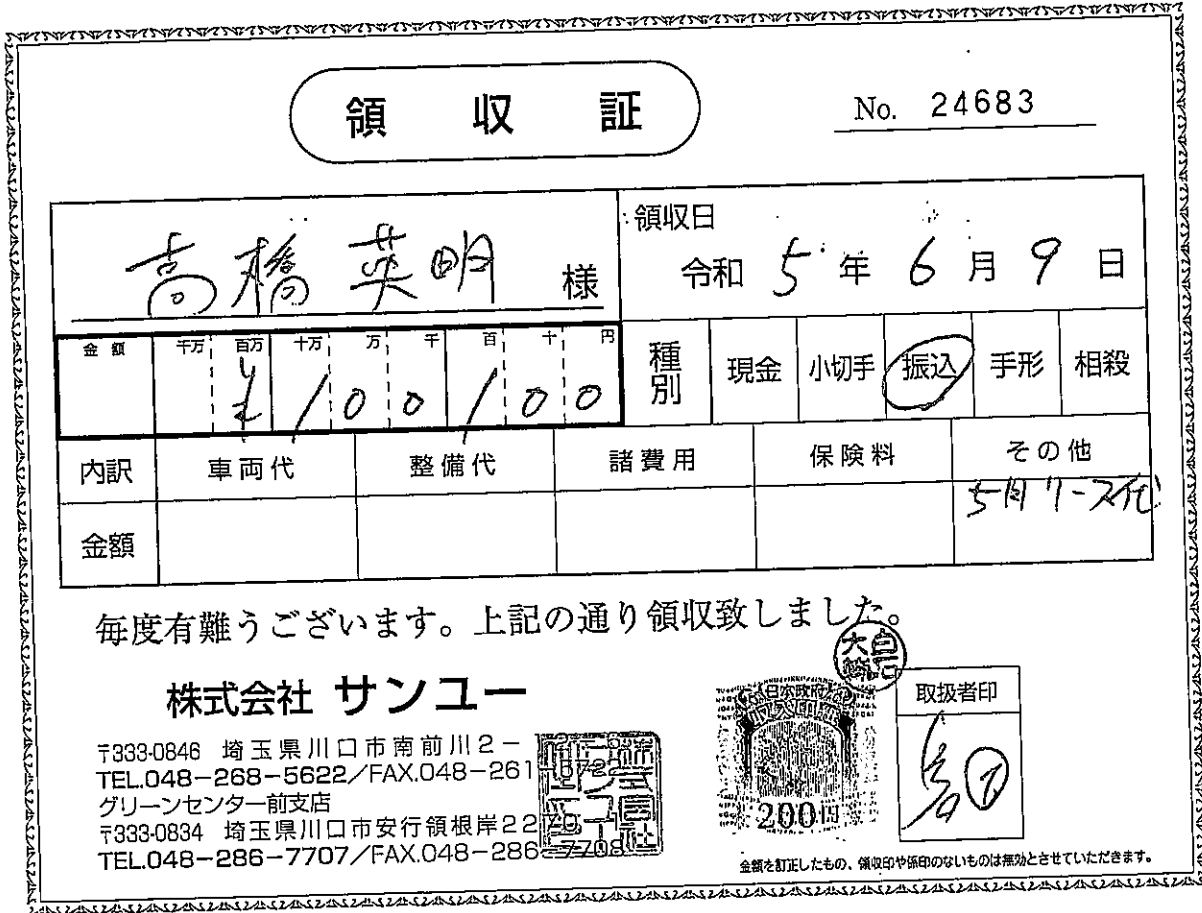 領収証
No. 24683
高橋英明 様
領収日
令和 5 年 6 月 9 日
金額 千万 百万 十万 万 千 百 十 円
¥100100
種別 現金 小切手 振込 手形 相殺
内訳 車両代 整備代 諸費用 保険料 その他
金額 5月リース代
毎度有難うございます。上記の通り領収致しました。
株式会社 サンユー
〒333-0846 埼玉県川口市南前川2-
TEL.048-268-5622/FAX.048-261
グリーンセンター前支店
〒333-0834 埼玉県川口市安行領根岸2270
TEL.048-286-7707/FAX.048-286-7708
日本政府
収入印紙
200円
取扱者印
金額を訂正したもの、領収印や係印のないものは無効とさせていただきます。